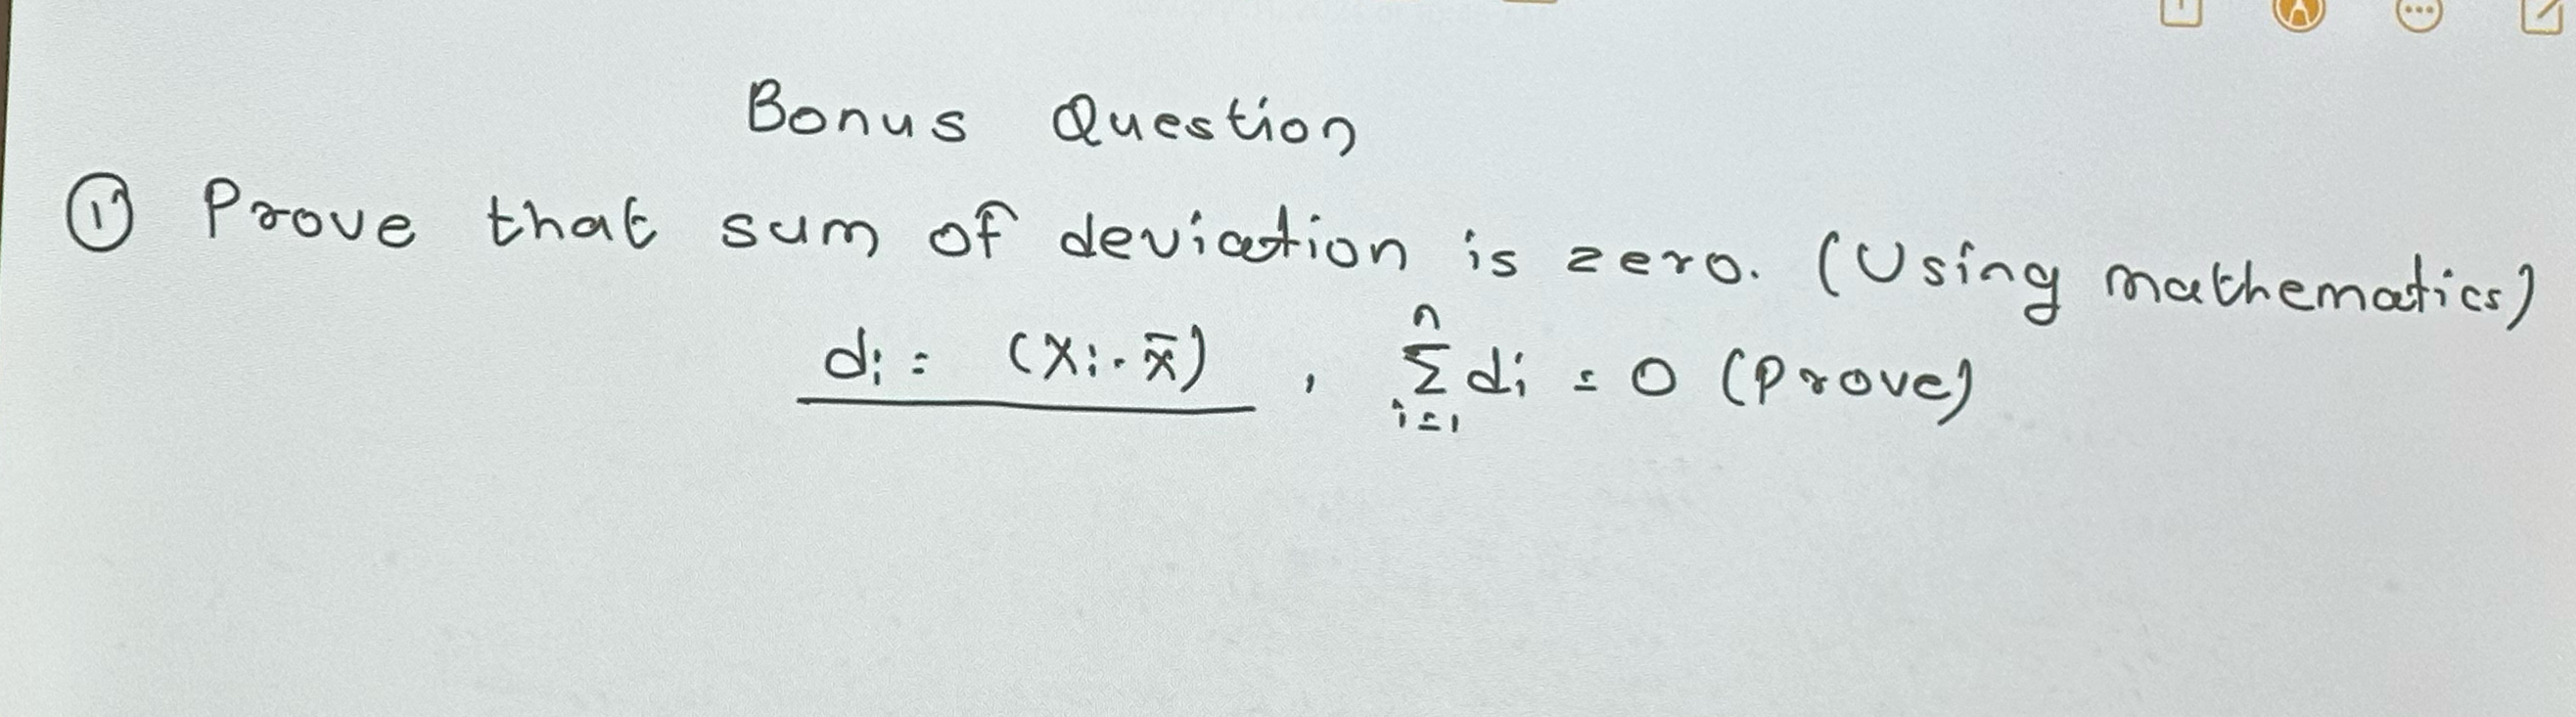 Bonus Question
① Prove that sum of deviation is zero. (Using mathematics)
di = (xi - x̄) , n∑i=1 di = 0 (Prove)